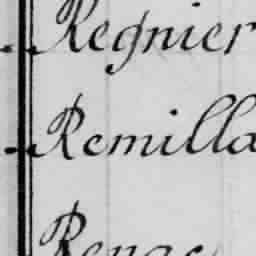 Regnier
Remilla